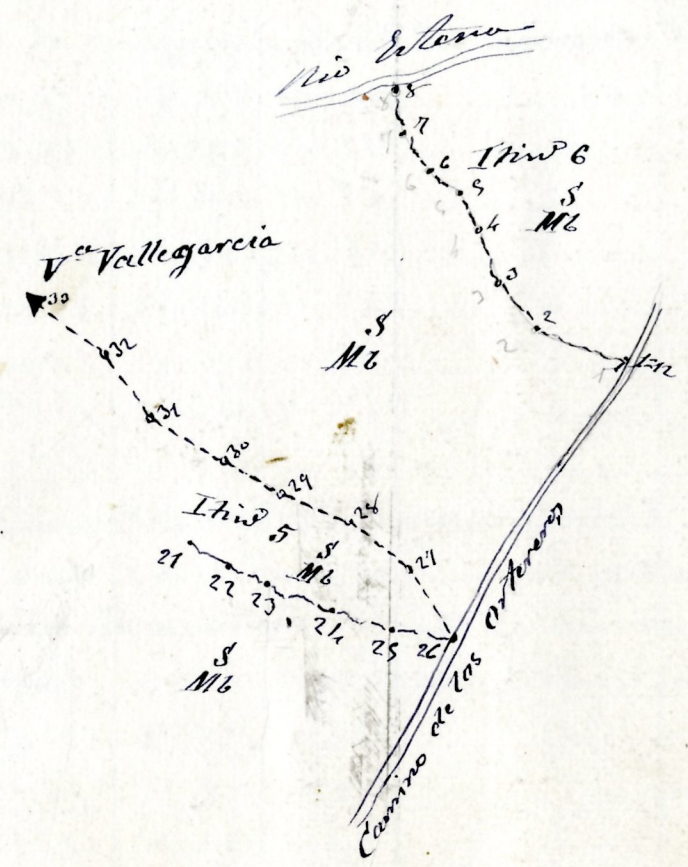 Rio Estena
8
7
6
Itinº 6
5
S
Mb
4
3
2
1=12
Vª Vallegarcia
33
32
31
30
29
28
27
S
Mb
Itinº 5
S
Mb
21
22
23
24
25
26
S
Mb
Camino de las